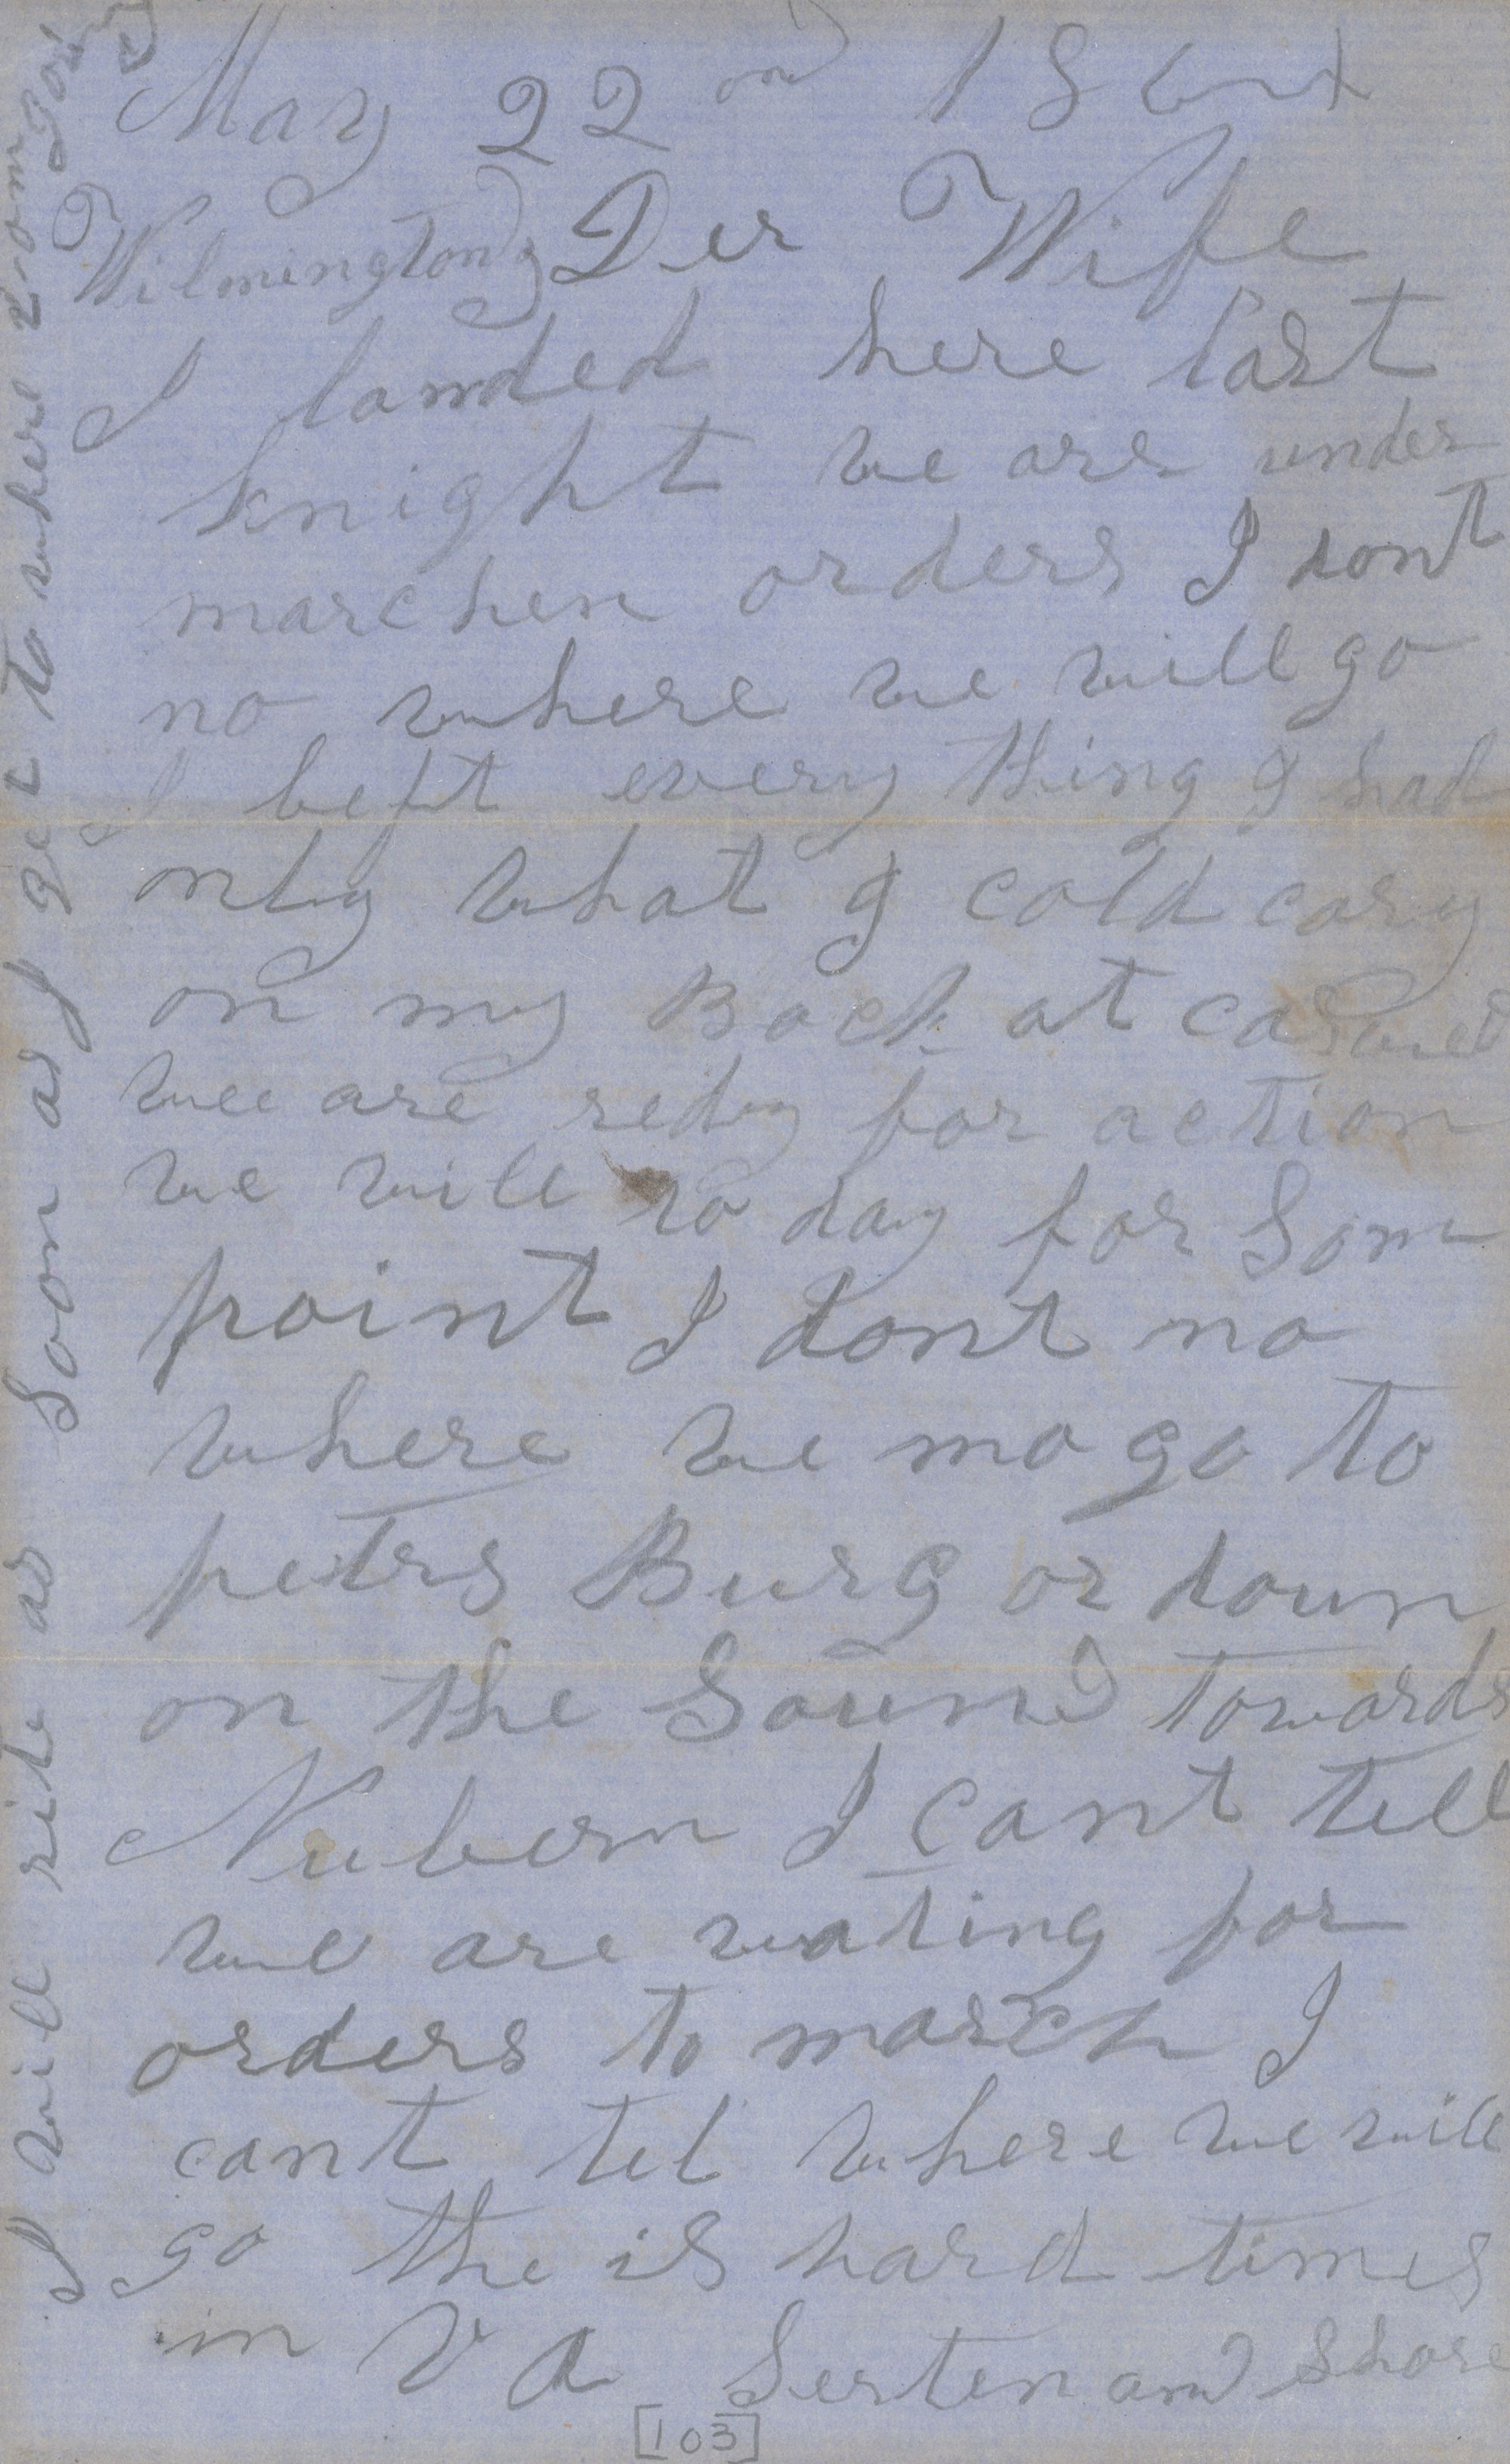 May 22nd 1864
Wilmington Der Wife
I landed here last
knight we are under
marchen orders I dont
no where we will go
I left every thing I had
only what I cold cary
on my Back at
wee are redy for action
we will to day for Som
point I dont no
where we ma go to
peters Burg or down
on the Sound towards
Nubern I cant tell
we are wating for
orders to march I
cant tel where we will
go the is hard times
in V A Serten and Shore
[103]
I will rite as Soon as I get to where I am going